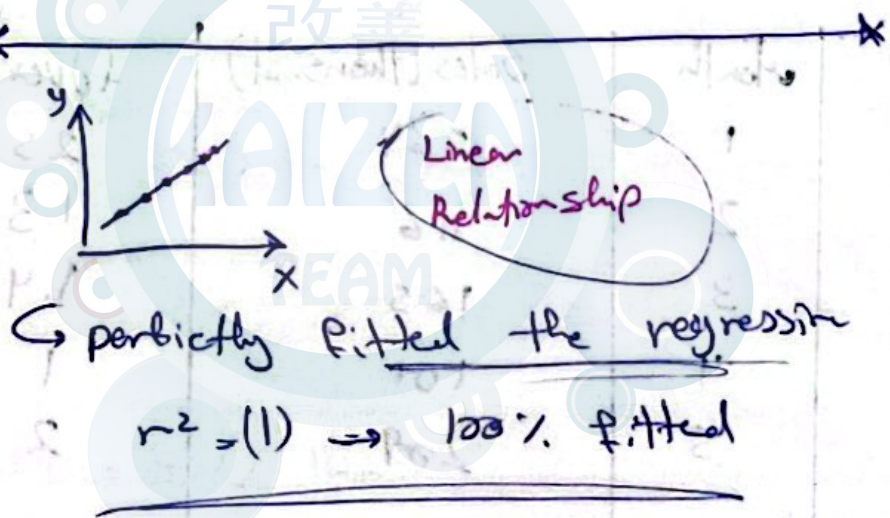 改善
KAIZEN
TEAM
y
x
Linear
Relationship
↳ perbictly fitted the regression
r² = (1) → 100% fitted